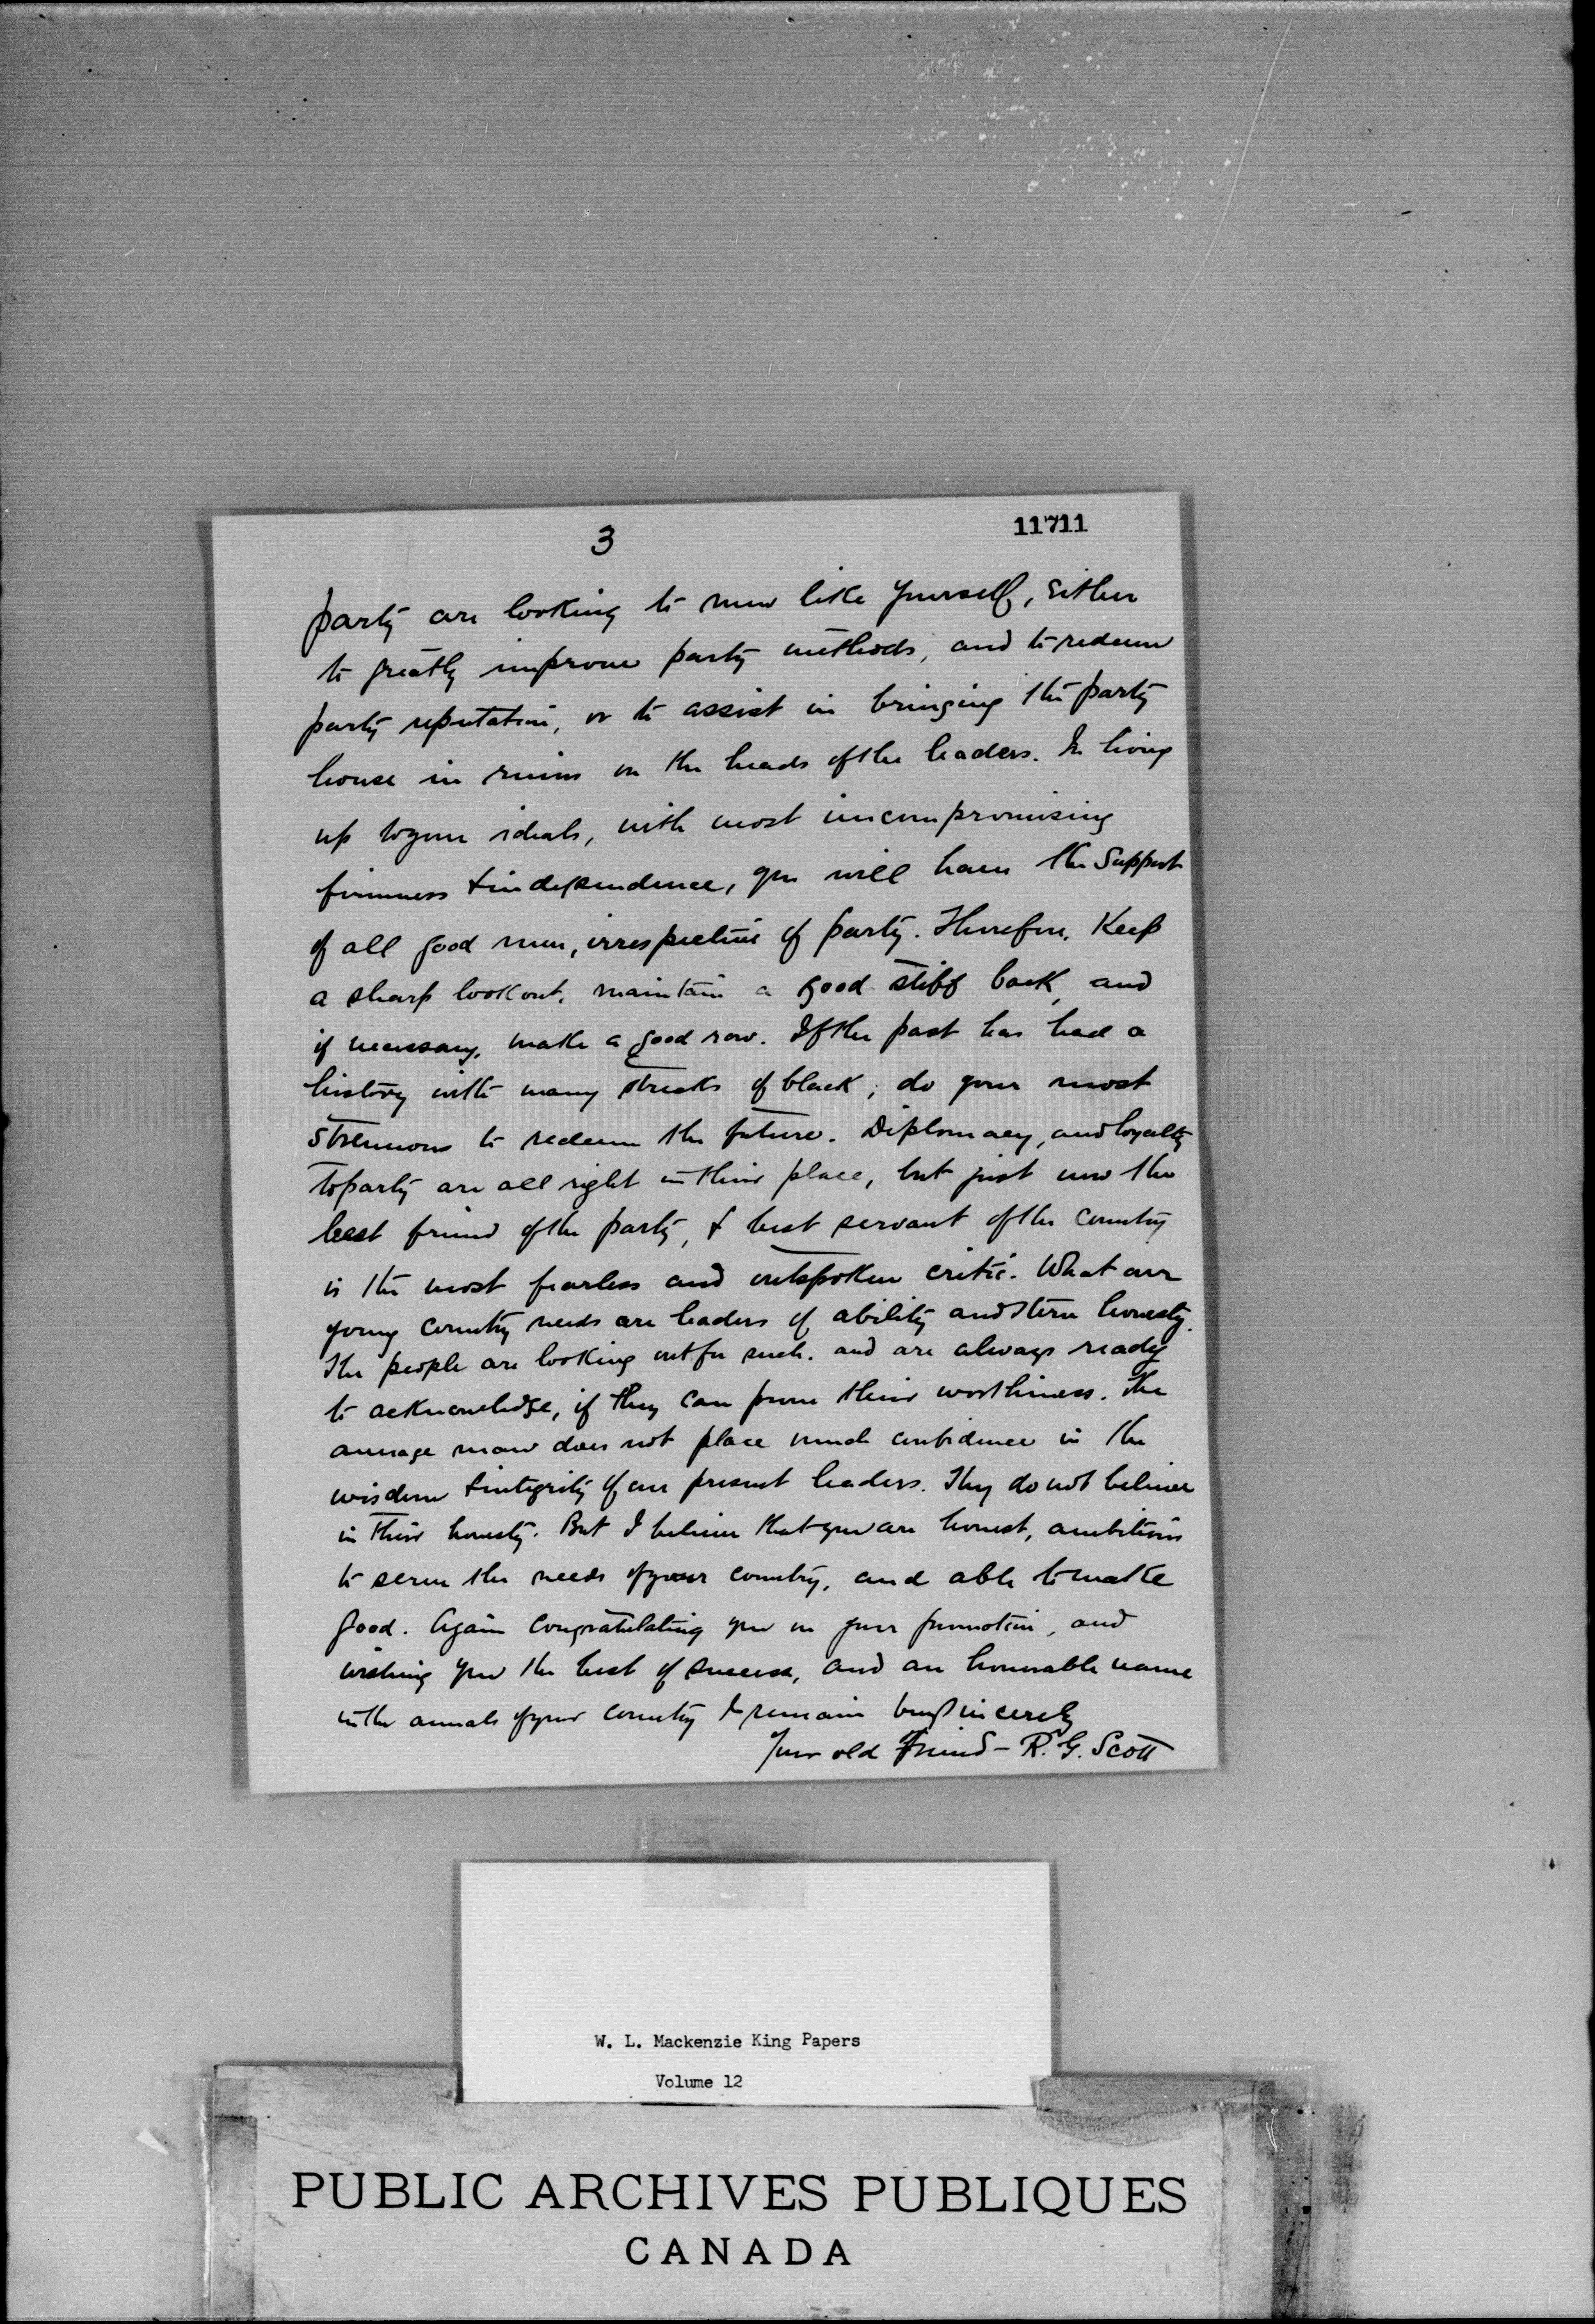 3
11711
party are looking to men like yourself, either
to greatly improve party methods, and to redeem
party reputation, or to assist in bringing the party
house in ruins on the heads of the leaders. In living
up to your ideals, with most uncompromising
firmness & independence, you will have the support
of all good men, irrespective of party. Therefore, Keep
a sharp lookout, maintain a good stiff back, and
if necessary, make a good row. If the past has had a
history with many streaks of black; do your most
strenuous to redeem the future. Diplomacy, and loyalty
to party are all right in their place, but just now the
best friend of the party, & best servant of the country
is the most fearless and outspoken critic. What our
young country needs are leaders of ability and stern honesty.
The people are looking out for such. and are always ready
to acknowledge, if they can prove their worthiness. The
average man does not place much confidence in the
wisdom & integrity of our present leaders. They do not believe
in their honesty. But I believe that you are honest, ambitious
to serve the needs of your country, and able to make
good. Again congratulating you on your promotion, and
wishing you the best of success, and an honorable name
in the annals of your country I remain sincerely
Your old Friend - R. G. Scott
W. L. Mackenzie King Papers
Volume 12
PUBLIC ARCHIVES PUBLIQUES
CANADA